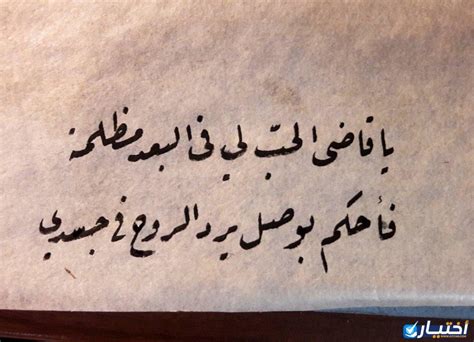 يا قاضى الحبّ لي فى البعد مظلمة
فأحكم بوصل يرد الروح في جسدي
اختيار